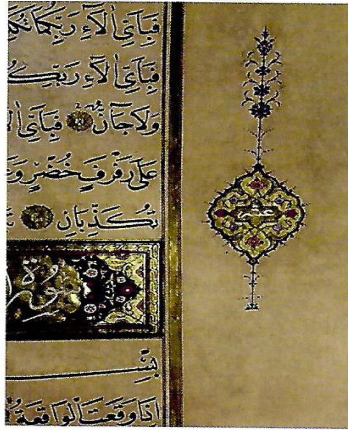 فَبِأَيِّ اٰلَاءِ رَبِّكُمَا تُكَ
فَبِأَيِّ اٰلَاءِ رَبِّكُ
وَلَا جَانٌّ فَبِأَيِّ اٰل
عَلٰى رَفْرَفٍ خُضْرٍ وَعَ
تُكَذِّبَانِ
سورة
بِسْـ
اِذَا وَقَعَتِ الْوَاقِعَةُ
عشر